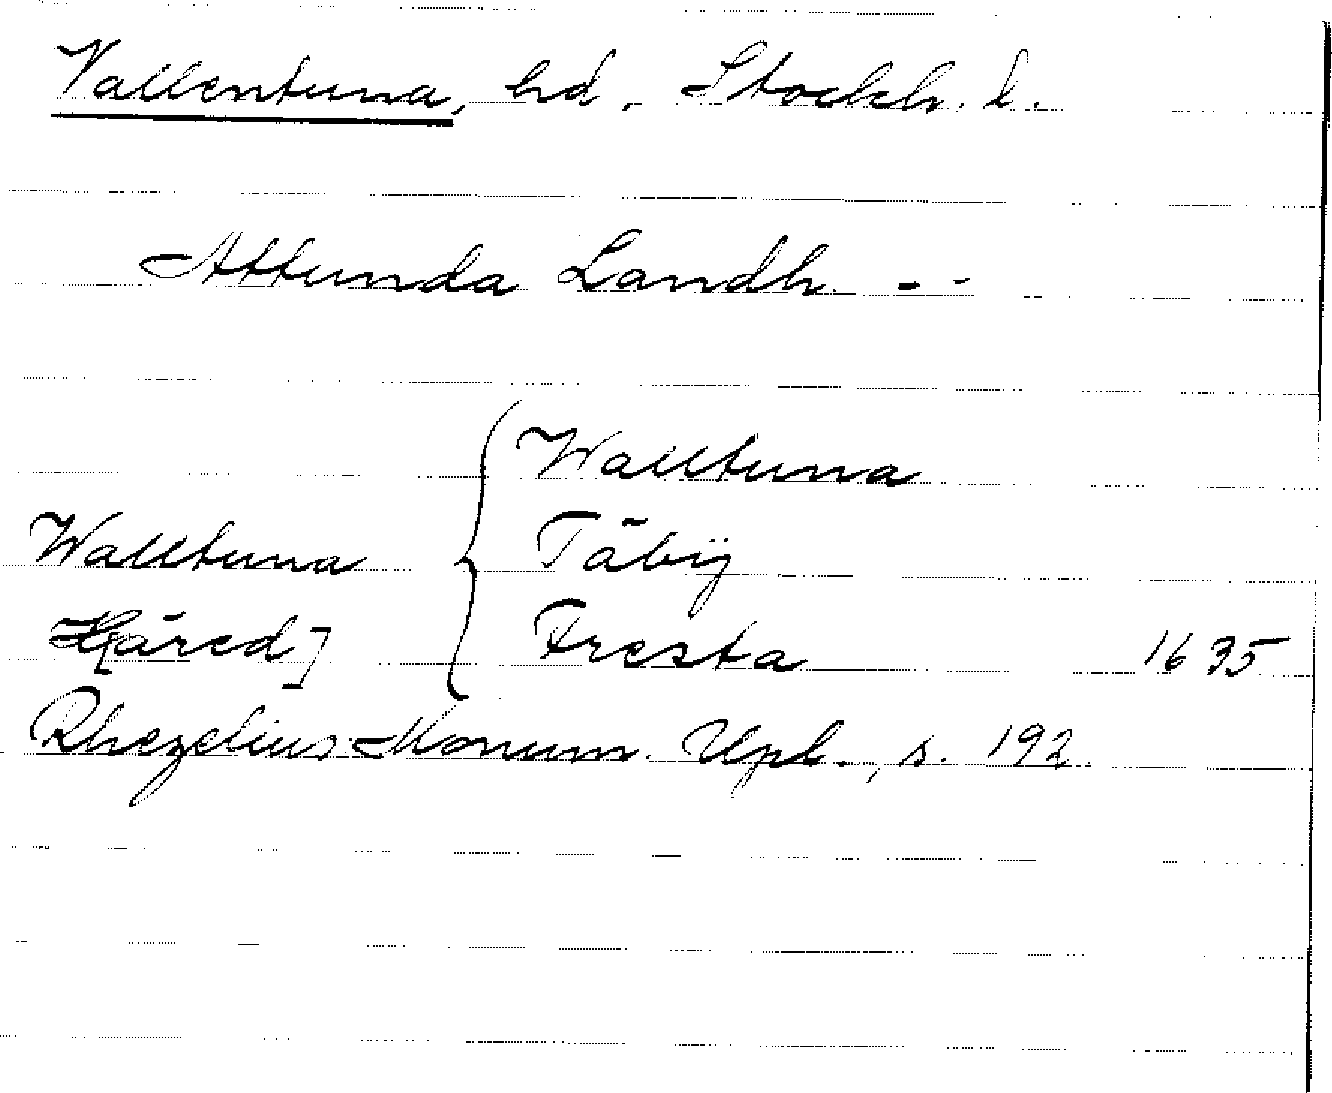 Vallentuna, hd, Stockh. l.
Attunda Landh. - -
Walltuna
Walltuna Täbÿ
H[äred] Fresta 1635
Rhezelius Monum. Upl., s. 192.